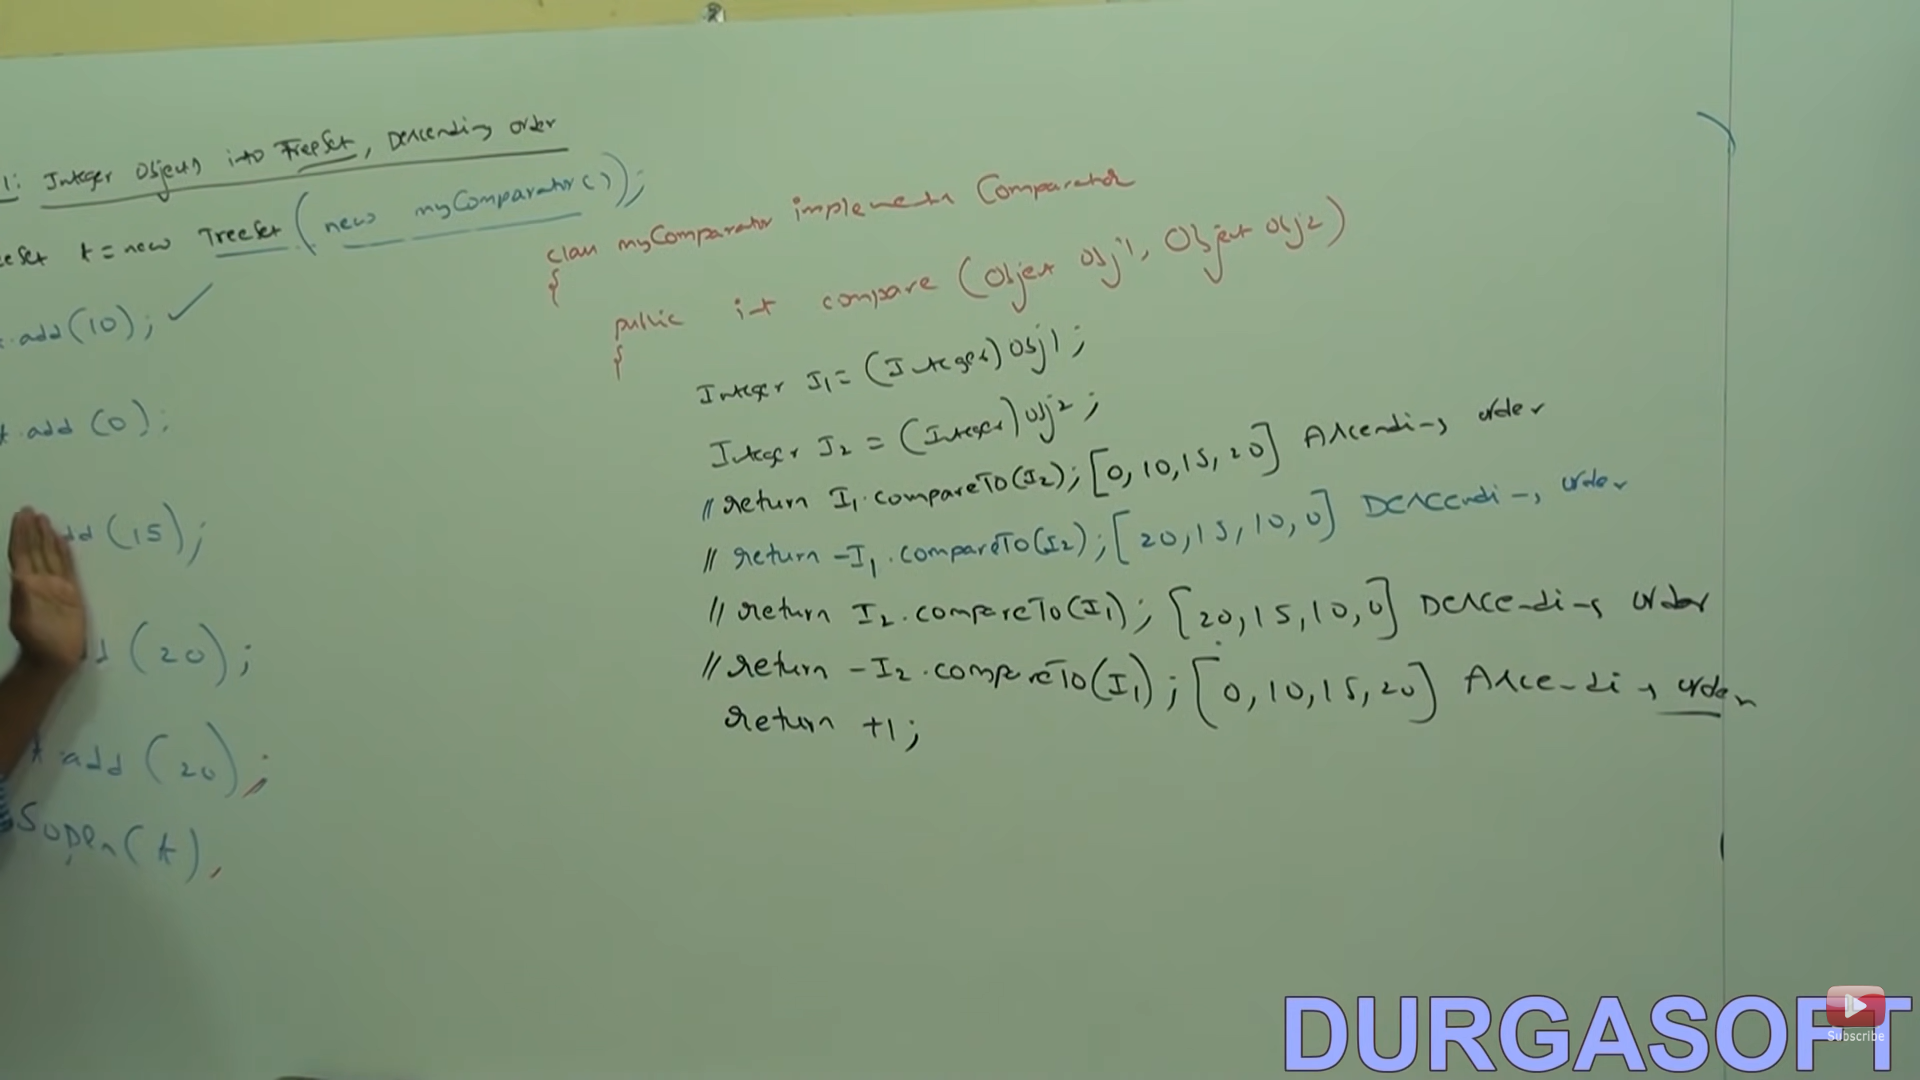 1: Integer Objects into TreeSet, Descending order
eeSet t = new TreeSet(new myComparator());
t.add(10);
t.add(0);
dd(15);
d(20);
t.add(20);
Sopln(t);
class myComparator implements Comparator
{
public int compare (Object obj1, Object obj2)
{
Integer I1 = (Integer)obj1;
Integer I2 = (Integer)obj2;
// return I1.compareTo(I2); [0, 10, 15, 20] Ascending order
// return -I1.compareTo(I2); [20, 15, 10, 0] Descending order
// return I2.compareTo(I1); [20, 15, 10, 0] Descending order
// return -I2.compareTo(I1); [0, 10, 15, 20] Ascending order
return +1;
DURGASOFT
Subscribe